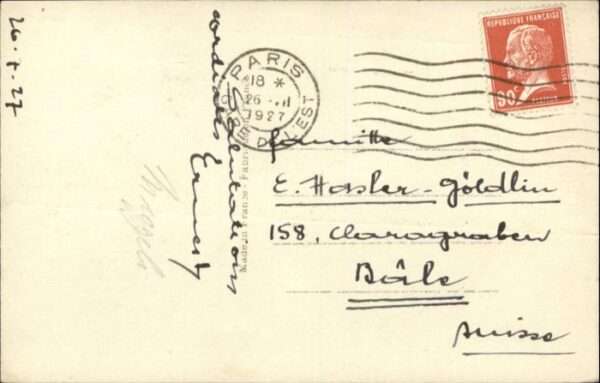 26.4.27
cordiales
Salutations
Ernest
Made in France - Fabri
PARIS
18 *
26
1927
GARE DE L'EST
REPUBLIQUE FRANÇAISE
90c
Famille
E. Hasler-Göldlin
158, Claragraben
Bâle
Suisse